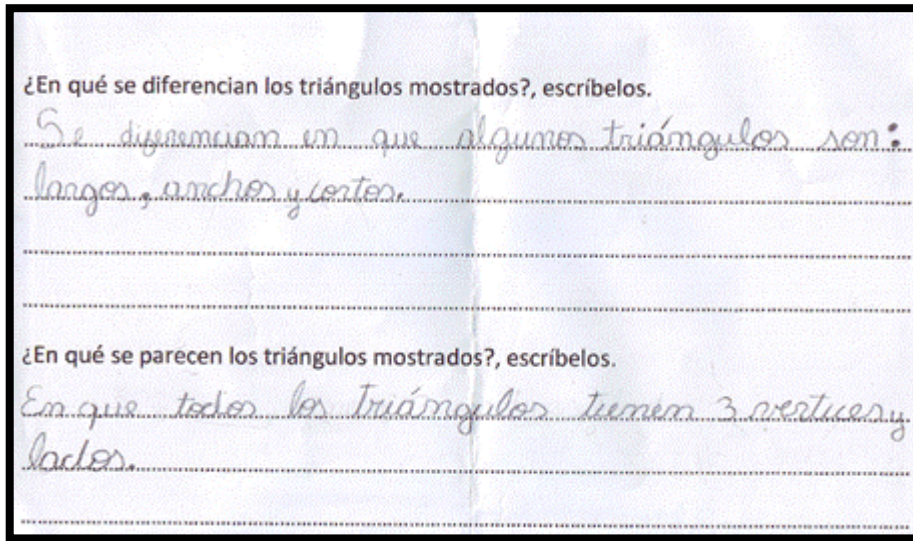 ¿En qué se diferencian los triángulos mostrados?, escríbelos.
Se diferencian en que algunos triángulos son:
largos, anchos y cortos.
¿En qué se parecen los triángulos mostrados?, escríbelos.
En que todos los triángulos tienen 3 vertices y
lados.